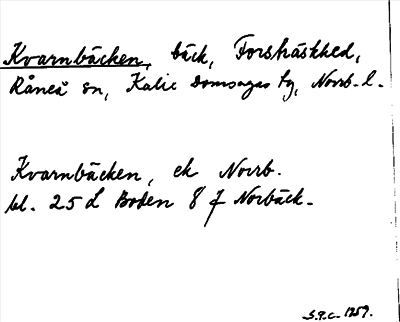 Kvarnbäcken, bäck, Forshäskhed,
Råneå sn, Kalix Domsagas tg, Norrb. l.
Kvarnbäcken, ek Norrb.
bl. 25 L Boden 8 f Norbäck.
S.P.C. 1959.